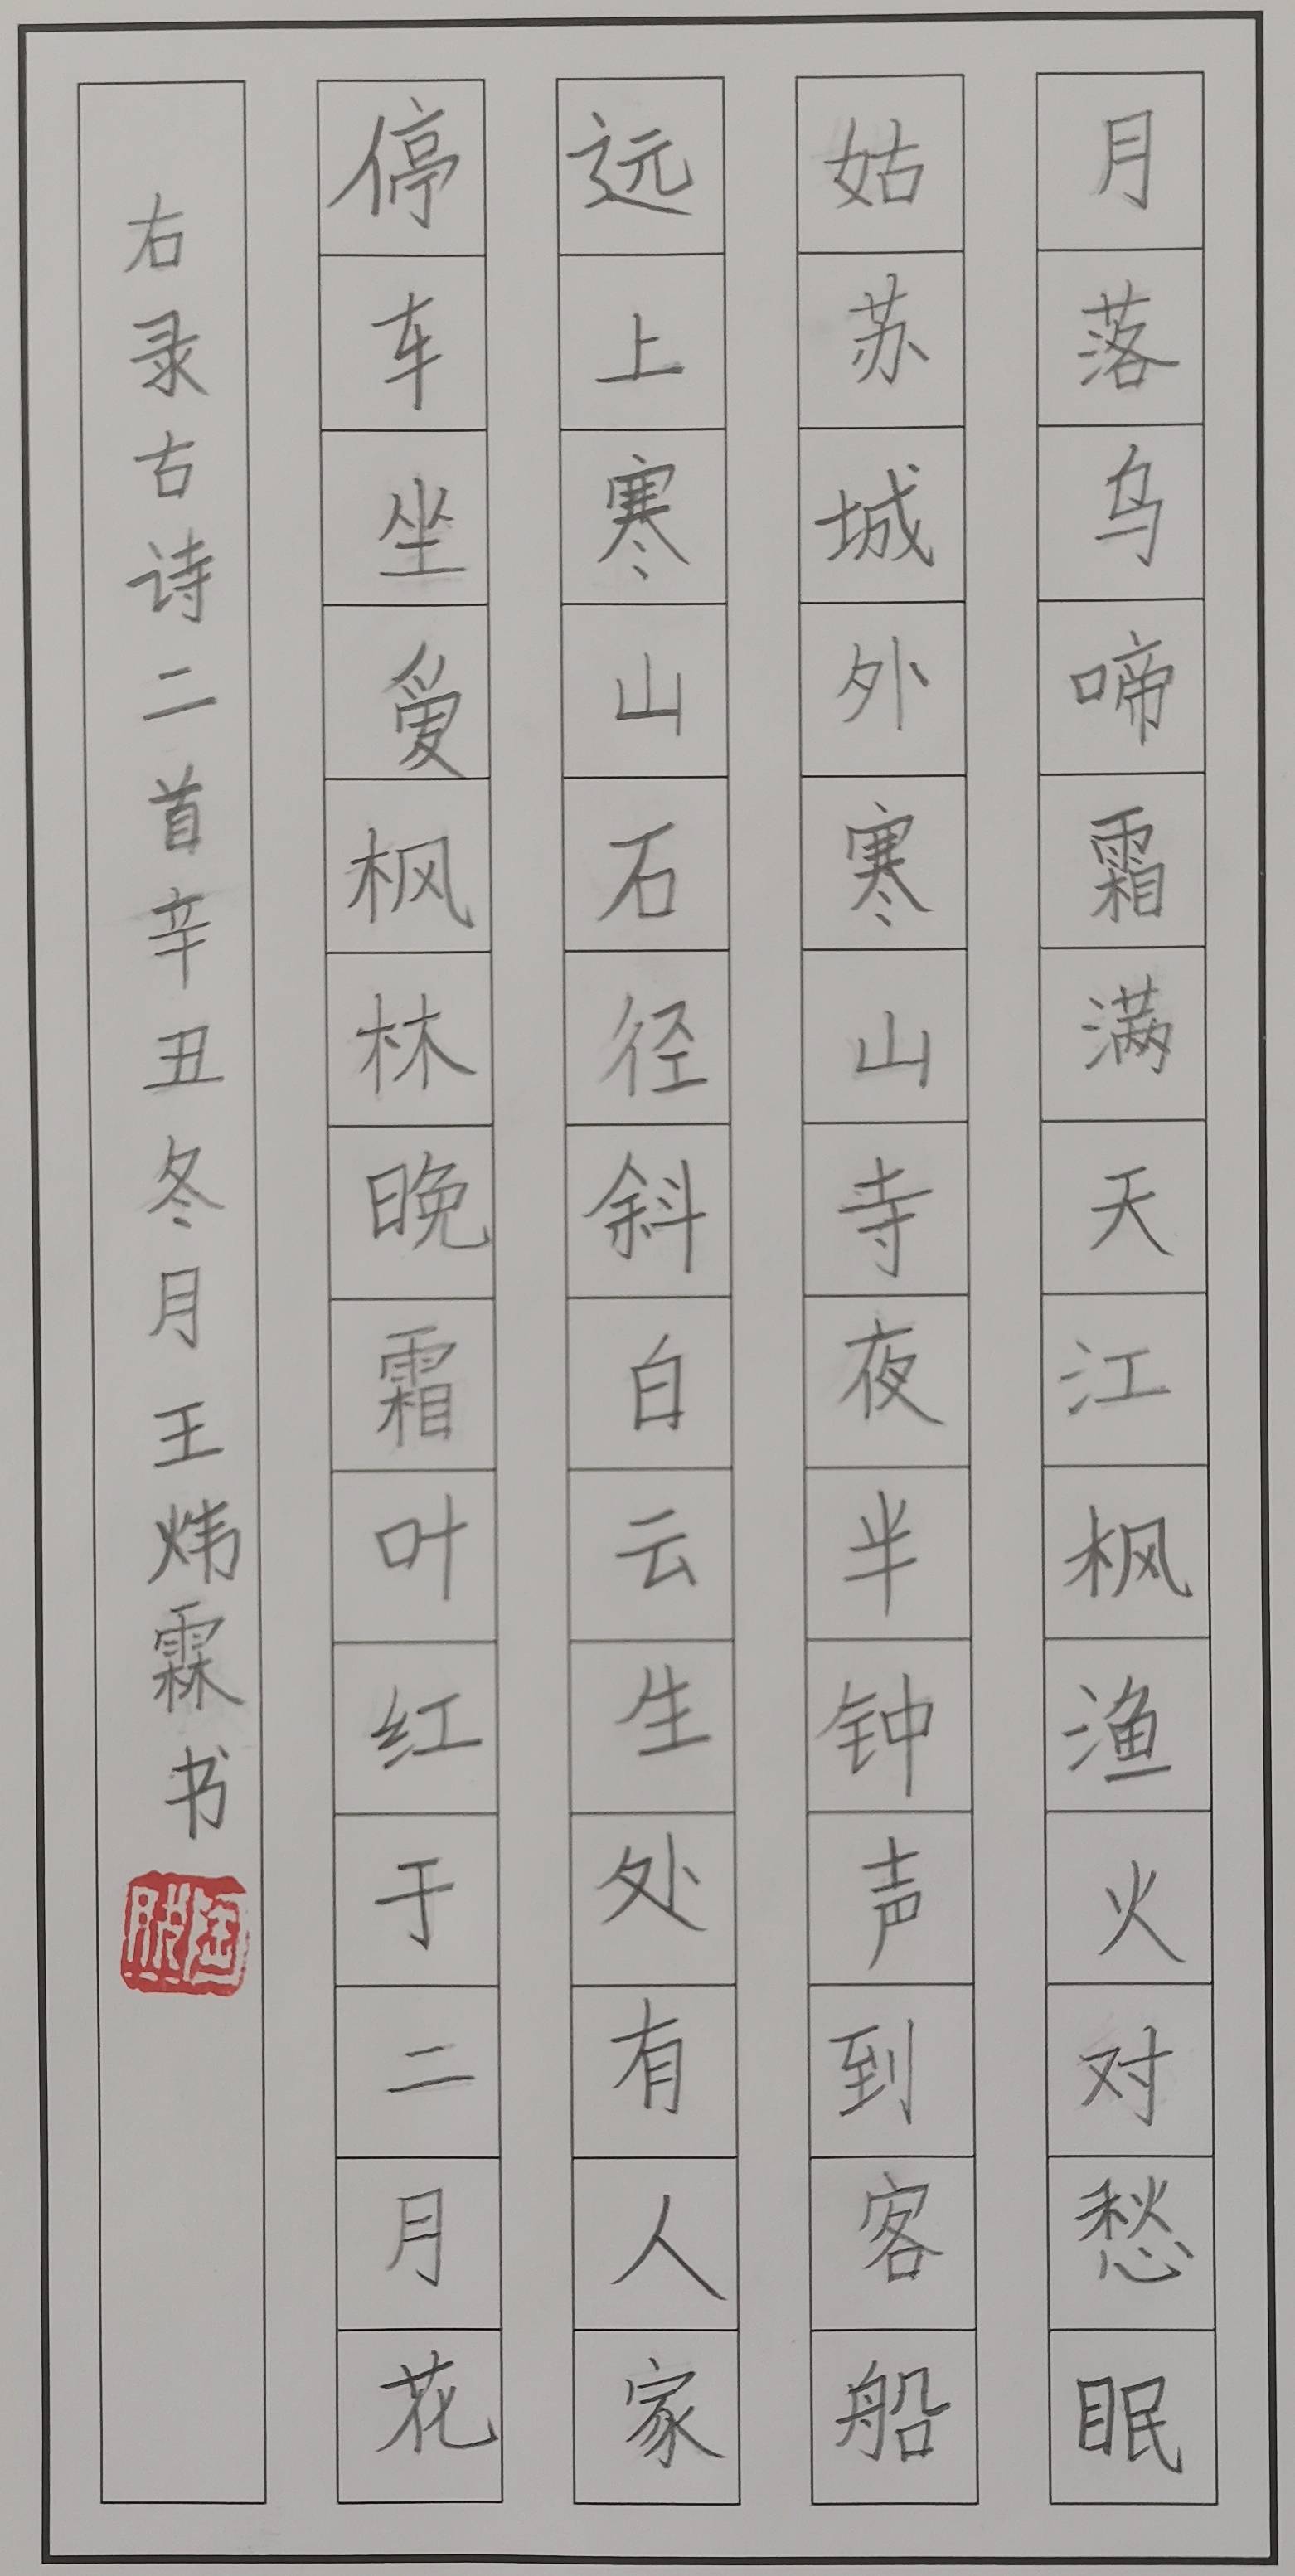 月落乌啼霜满天江枫渔火对愁眠
姑苏城外寒山寺夜半钟声到客船
远上寒山石径斜白云生处有人家
停车坐爱枫林晚霜叶红于二月花
右录古诗二首辛丑冬月王炜霖书